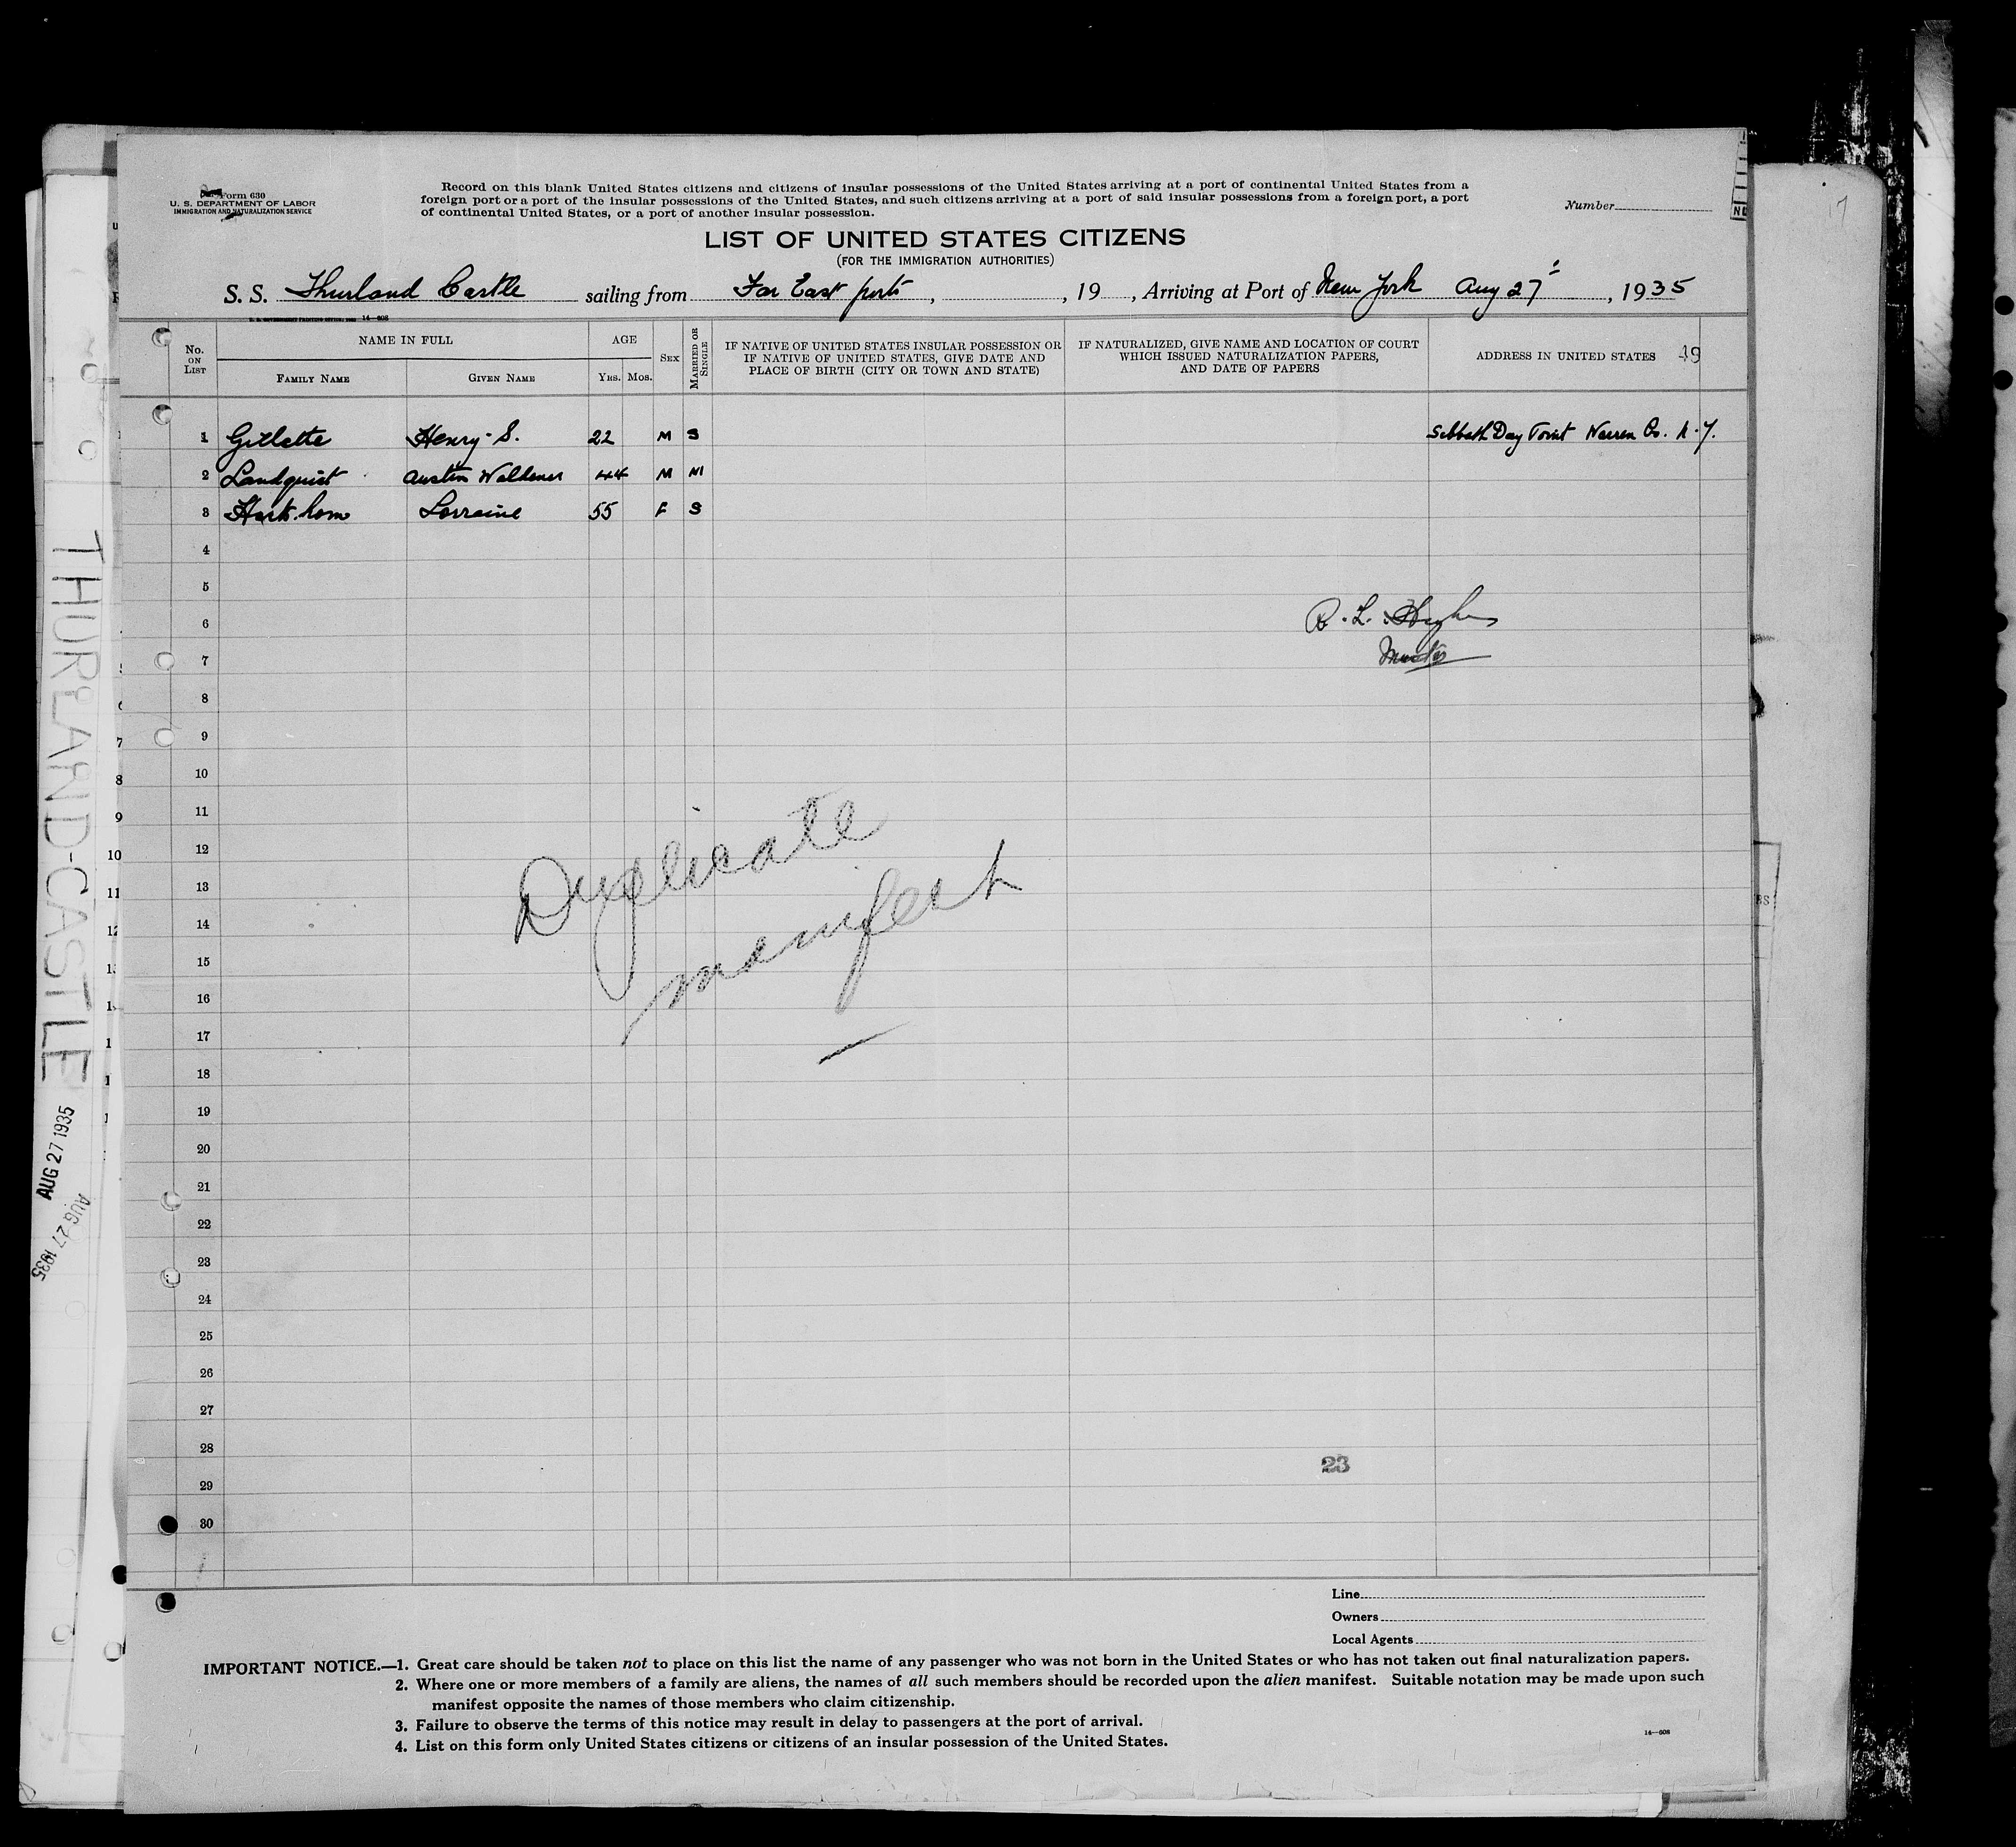 Form 630
U. S. DEPARTMENT OF LABOR
IMMIGRATION AND NATURALIZATION SERVICE
Record on this blank United States citizens and citizens of insular possessions of the United States arriving at a port of continental United States from a
foreign port or a port of the insular possessions of the United States, and such citizens arriving at a port of said insular possessions from a foreign port, a port
of continental United States, or a port of another insular possession.
Number
LIST OF UNITED STATES CITIZENS
(FOR THE IMMIGRATION AUTHORITIES)
S. S. Thurland Castle sailing from Far East ports, , 19 , Arriving at Port of New York Aug 27, 1935
14—608
No. ON LIST
NAME IN FULL
FAMILY NAME
GIVEN NAME
AGE
YRS. MOS.
SEX
MARRIED OR SINGLE
IF NATIVE OF UNITED STATES INSULAR POSSESSION OR
IF NATIVE OF UNITED STATES, GIVE DATE AND
PLACE OF BIRTH (CITY OR TOWN AND STATE)
IF NATURALIZED, GIVE NAME AND LOCATION OF COURT
WHICH ISSUED NATURALIZATION PAPERS,
AND DATE OF PAPERS
ADDRESS IN UNITED STATES 49
1 Gillette Henry S. 22 M S Sabbath Day Point Warren Co. N.Y.
2 Landquist Austin 44 M M
3 Lorraine 55 F S
4
5
6 R. L. Hughes
7 Master
8
9
10
11
12
13
14
15
16
17
18
19
20
21
22
23
24
25
26
27
28
29
30
Duplicate
manifest
23
Line
Owners
Local Agents
IMPORTANT NOTICE.—1. Great care should be taken not to place on this list the name of any passenger who was not born in the United States or who has not taken out final naturalization papers.
2. Where one or more members of a family are aliens, the names of all such members should be recorded upon the alien manifest. Suitable notation may be made upon such
manifest opposite the names of those members who claim citizenship.
3. Failure to observe the terms of this notice may result in delay to passengers at the port of arrival.
4. List on this form only United States citizens or citizens of an insular possession of the United States.
14—608
THURLAND-CASTLE
AUG 27 1935
AUG 27 1935
17